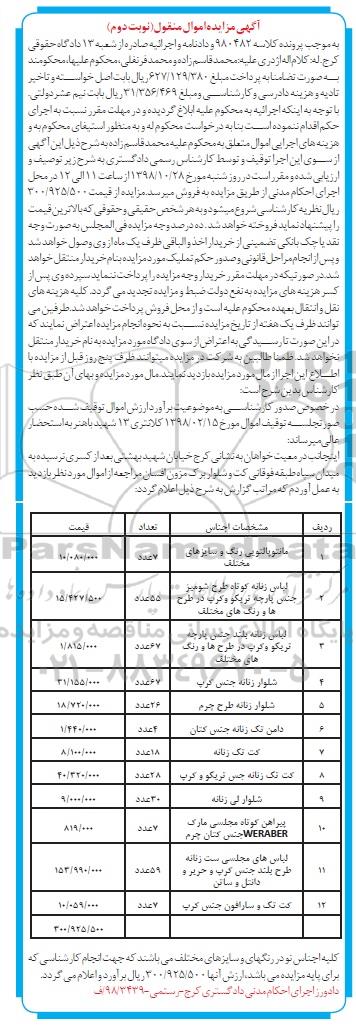 آگهی مزایده اموال منقول (نوبت دوم)
به موجب پرونده کلاسه ۹۸۰۴۸۲ و دادنامه و اجرائیه صادره از شعبه ۱۳ دادگاه حقوقی
کرج، له: کلام اله اژدری علیه: محمدقاسم زاده و محمد فرنقلی، محکوم علیها، محکومند
به صورت تضامنا به پرداخت مبلغ ۶۲۷/۱۲۹/۳۸۰ ریال بابت اصل خواسته و تاخیر
تادیه و هزینه دادرسی و کارشناسی و مبلغ ۳۱/۳۵۶/۴۶۹ ریال بابت نیم عشر دولتی.
با توجه به اینکه اجرائیه به محکوم علیه ابلاغ گردیده و در مهلت مقرر نسبت به اجرای
حکم اقدام ننموده است بنا به درخواست محکوم له و به منظور استیفای محکوم به و
هزینه های اجرایی اموال متعلق به محکوم علیه محمد قاسم زاده به شرح ذیل این آگهی
از سوی این اجرا توقیف و توسط کارشناس رسمی دادگستری به شرح زیر توصیف و
ارزیابی شده و مقرر است در روز شنبه مورخ ۱۳۹۸/۱۰/۲۸ از ساعت ۱۱ الی ۱۲ در محل
اجرای احکام مدنی از طریق مزایده به فروش میرسد. مزایده از قیمت ۳۰۰/۹۲۵/۵۰۰
ریال نظریه کارشناسی شروع میشود و به هر شخص حقیقی و حقوقی که بالاترین قیمت
را پیشنهاد نماید فروخته خواهد شد. ده درصد وجه مزایده فی المجلس به صورت وجه
نقد یا چک بانکی تضمینی از خریدار اخذ و الباقی ظرف یک ماه از وی وصول خواهد شد
و پس از انجام مراحل قانونی و صدور حکم تملیک مورد مزایده بنام خریدار منتقل خواهد
شد. در صورتیکه در مهلت مقرر خریدار وجه مزایده را پرداخت ننماید سپرده وی پس از
کسر هزینه های مزایده به نفع دولت ضبط و مزایده تجدید می گردد. کلیه هزینه های
نقل و انتقال بعهده محکوم علیه است و از محل فروش پرداخت خواهد شد. طرفین می
توانند ظرف یک هفته از تاریخ مزایده نسبت به نحوه انجام مزایده اعتراض نمایند که
در این صورت تا رسیدگی به اعتراض از سوی دادگاه مورد مزایده به نام خریدار منتقل
نخواهد شد. ظمنا طالبین به شرکت در مزایده میتوانند ظرف پنج روز قبل از مزایده با
اطلاع این اجرا از مال مورد مزایده بازدید نمایند. مال مورد مزایده و بهای آن طبق نظر
کارشناس بدین شرح است:
در خصوص صدور کارشناسی به موضوعیت برآورد ارزش اموال توقیف شده حسب
صورتجلسه توقیف اموال مورخ ۱۳۹۸/۰۲/۱۵ کلانتری ۱۳ شهید باهنر به استحضار
عالی میرساند:
اینجانب در معیت خواهان به نشانی کرج خیابان شهید بهشتی بعد از کسری نرسیده به
میدان سپاه طبقه فوقانی کت و شلوار برک مزون افسان مراجعه از اموال مورد نظر بازدید
به عمل آوردم که مراتب گزارش به شرح ذیل اعلام گردد:
ردیف مشخصات اجناس تعداد قیمت
۱ مانتوپالتویی رنگ و سایزهای مختلف ۷عدد ۱۰/۰۸۰/۰۰۰
۲ لباس زنانه کوتاه طرح شومیز جنس پارچه تریکو وکرپ در طرح ها و رنگ های مختلف ۵۵عدد ۱۵/۴۲۷/۵۰۰
۳ لباس زنانه بلند جنس پارچه تریکو وکرپ در طرح ها و رنگ های مختلف ۶۷عدد ۱/۸۱۵/۰۰۰
۴ شلوار زنانه جنس کرپ ۶۷عدد ۳۱/۱۵۵/۰۰۰
۵ شلوار زنانه طرح چرم ۲۶عدد ۱۸/۷۲۰/۰۰۰
۶ دامن تک زنانه جنس کتان ۴عدد ۱/۴۴۰/۰۰۰
۷ کت تک زنانه ۱۸عدد ۸/۱۰۰/۰۰۰
۸ کت تک زنانه جس تریکو و کرپ ۲۸عدد ۴۰/۳۲۰/۰۰۰
۹ شلوار لی زنانه ۳۰عدد ۹/۰۰۰/۰۰۰
۱۰ پیراهن کوتاه مجلسی مارک WERABERجنس کتان چرم ۷عدد ۸۱۹/۰۰۰
۱۱ لباس های مجلسی ست زنانه طرح بلند جنس کرپ و حریر و دانتل و ساتن ۵۹عدد ۱۵۳/۹۹۰/۰۰۰
۱۲ کت تک و سارافون جنس کرپ ۷عدد ۱۰/۰۵۹/۰۰۰
۳۰۰/۹۲۵/۵۰۰
کلیه اجناس نو در رنگهای و سایزهای مختلف می باشند که جهت انجام کارشناسی که
برای پایه مزایده می باشد، ارزش آنها ۳۰۰/۹۲۵/۵۰۰ ریال برآورد و اعلام می گردد.
دادورز اجرای احکام مدنی دادگستری کرج- رستمی -۹۸/۳۴۳۹/ف